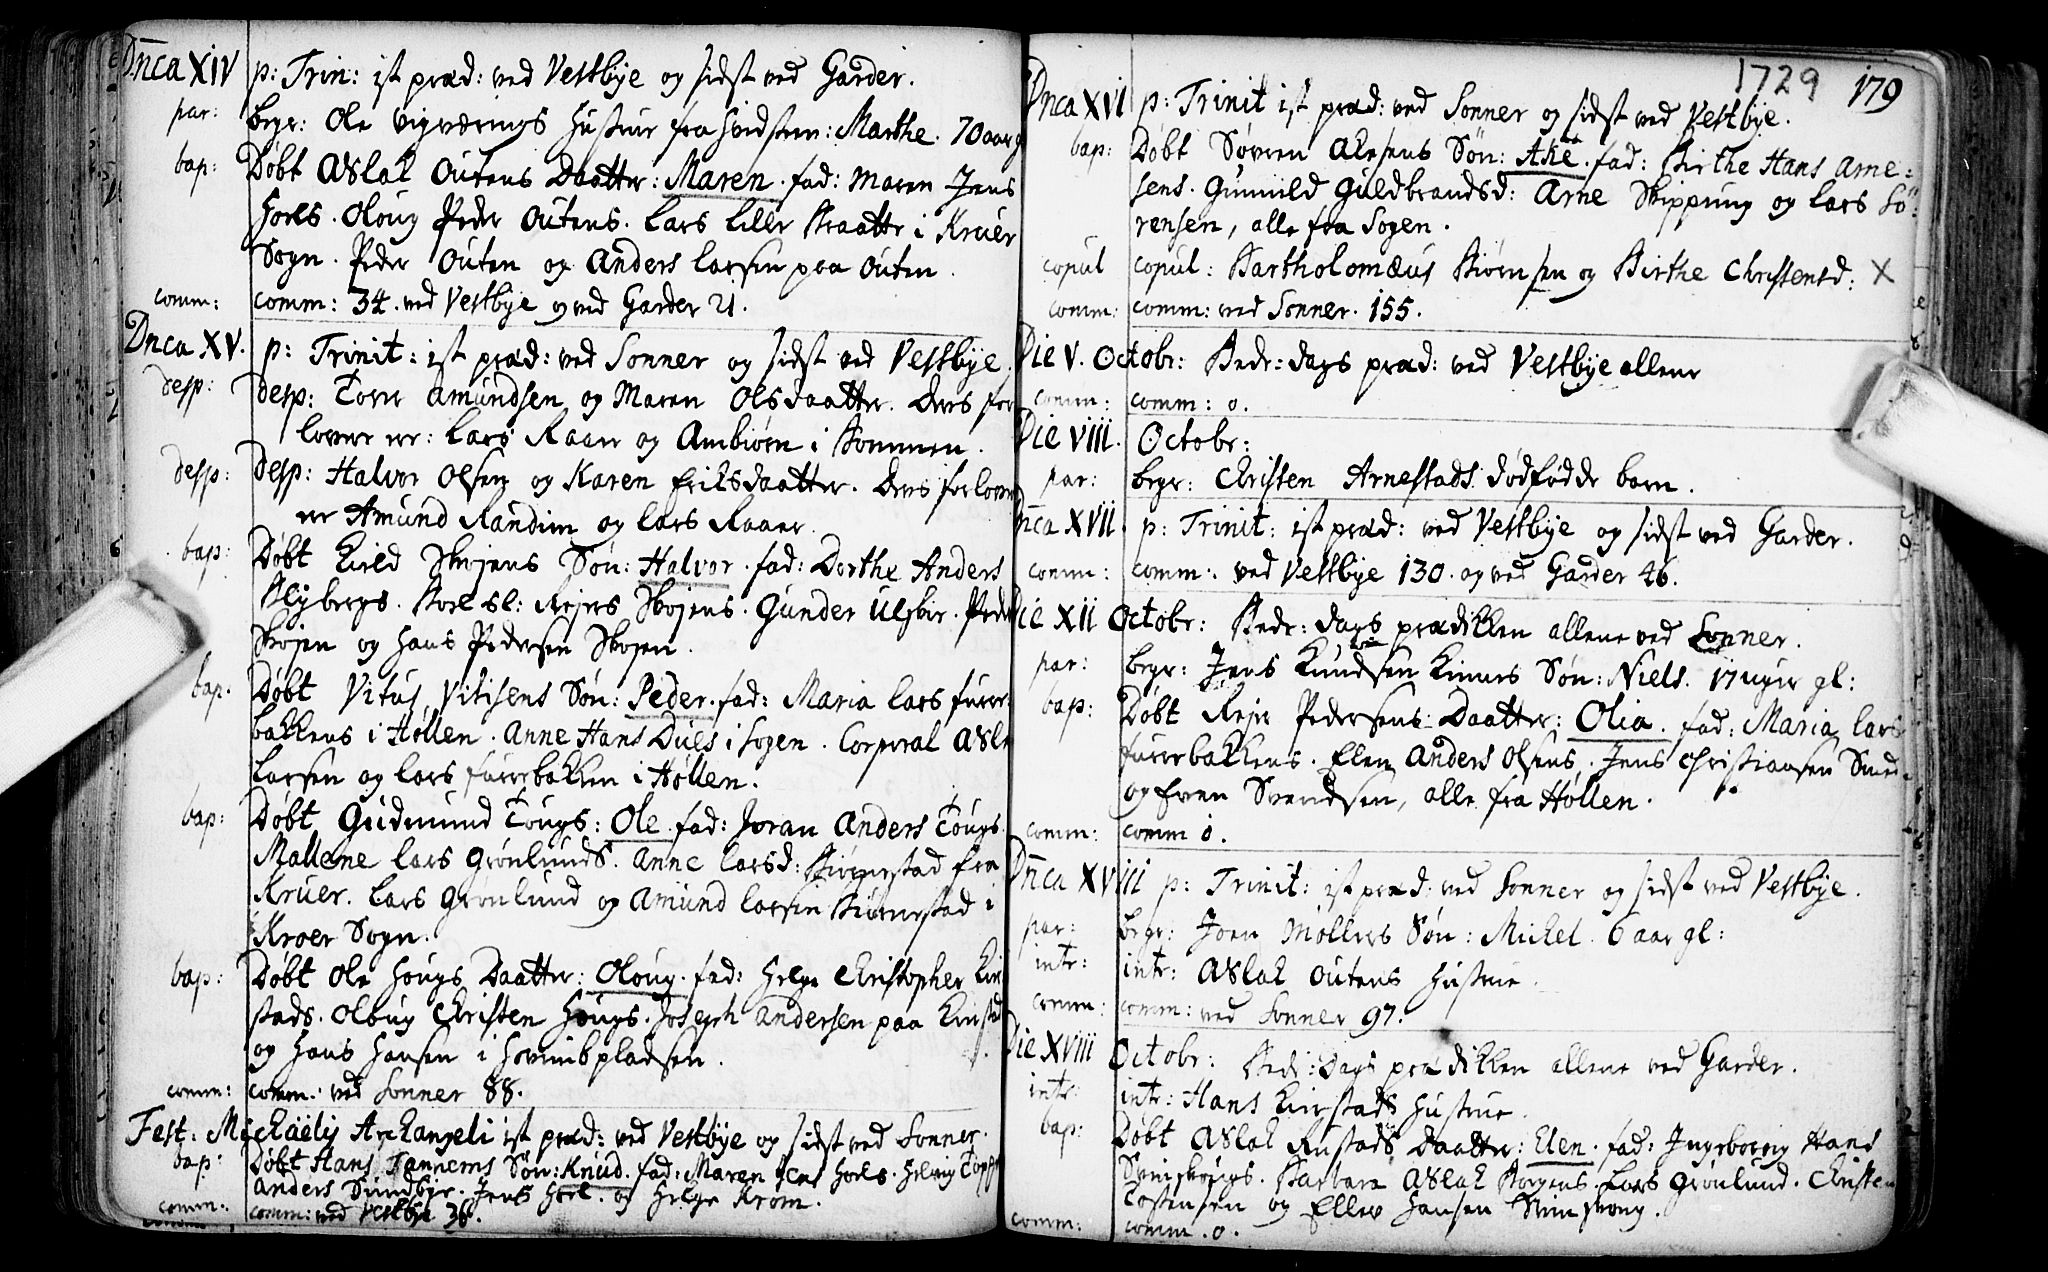 Dnca XIV p: Trin: ist præd: ved Vestbye og sidst ved Garder.
par: begr: Ole Vigværings Hustrue fra Hvidsteen: Marthe. 70 aar gl
bap: Døbt Aslak Outens Daatter: Maren. fad: Maren Jens
Horls. Oloug Peder Outens. Lars Lille Kraatte i Kruer
Sogn. Peder Outen og Anders Larsen paa Outen.
comm: comm: 34. ved Vestbye og ved Garder 21.
Dnca XV. p: Trinit: ist præd: ved Sonner og sidst ved Vestbye.
desp: desp: Tore Amundsen og Maren Olsdaatter. Deres for
lovere er: Lars Raaer og Ambiørn i
desp: desp: Halvor Olsen og Karen Eriksdaatter. Deres forlovere
er Amund Randim og Lars Raaer.
bap: Døbt Kield Skojens Søn: Halvor. fad: Dorthe Anders
Slybergs. sl: Rejers Skojens. Gunder Ulsbir. Peder
Skojen og Hans Pedersen Skojen.
bap. Døbt Vitus Vitisens Søn: Peder. fad: Maria Lars furre:
bakkens i Høllen. Anne Hans Dues i Sogen. Corporal Asle
Larsen og Lars furrebakken i Høllen.
bap: Døbt Gudmund Tougs: Ole. fad: Joran Anders Tougs.
Mallene Lars Grønlunds. Anne Larsd: Kiørnstad fra
Kruer. Lars Grønlund og Amund Larsen Kiørnstad i
Kroer Sogn.
bap: Døbt Ole Hougs Daatter: Oloug. fad: Helge Christopher Kir
stads. Oloug Christen Hougs. Joseph Andersen paa Kirstad
og Hans Hansen i Hovimbpladsen.
comm: comm: ved Sonner 88.
Fest: Michaëlis Archangeli ist præd: ved Vestbye og sidst ved Sonner.
bap: Døbt Hans Tannems Søn: Knud. fad: Maren Jens Horls. Helvig Topp
Anders Sundbye. Jens Horl. og Helge Krom.
comm: comm: ved Vestbye 36.
1729 179
Dnca XVI p: Trinit ist præd: ved Sonner og sidst ved Vestbye.
bap: Døbt Søvren Alesens Søn: Ake. fad: Birthe Hans Arne:
sens. Gunnild Guldbrandsd: Arne Skippung og Lars Sö:
rensen, alle fra Sogen.
copul copul: Bartholomæus Biørnsen og Birthe Christensd: X
comm: comm: ved Sonner. 155.
Die V. Octobr: Bede: dags præd: ved Vestbye allene
comm: comm: 0.
Die VIII. Octobr:
par: begr: Christen Arnestads dødfødde barn.
Dnca XVII. p: Trinit: ist præd: ved Vestbye og sidst ved Garder.
comm: comm: ved Vestbye 130. og ved Garder 46.
Die XII Octobr: Bede: dags prædikken allene ved Sonner.
par: begr: Jens Knudsen Søn: Niels. 17 uger gl:
bap: Døbt Rejer Pedersens Daatter: Olia. fad: Maria Lars
furrebakkens. Elen Anders Olsens. Jens Christiansen Smed
og Even Svendsen, alle fra Høllen.
comm: comm 0.
Dnca XVIII p: Trinit: ist præd: ved Sonner og sidst ved Vestbye.
par: begr: Joen Möllers Søn: Michel. 6 aar gl:
intr: intr: Aslak Outens Hustrue.
comm: comm: ved Sonner 97.
Die XVIII Octobr: Bede: Dags prædikken allene ved Garder.
intr: intr: Hans Kirstads Hustrue.
bap: Døbt Aslak Rustads Daatter: Elen. fad: Ingeborrig Hans
Barbara Aslak Lars Grønlund. Christen
Tostensen og Ellev Hansen
comm: comm. 0.